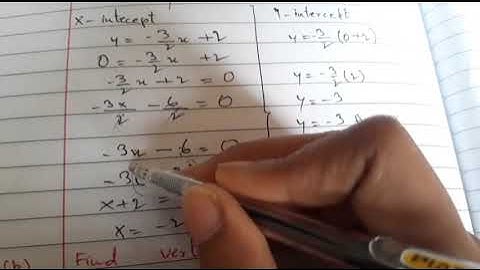 x-intercept
y = -3/2 x + 2
0 = -3/2 x + 2
-3/2 x + 2 = 0
-3x/2 - 6/2 = 0
-3x - 6 = 0
x + 2 =
x = -2
y-intercept
y = -3/2 (0+2)
y = -3/2 (2)
y = -3
y = -3
(b) Find